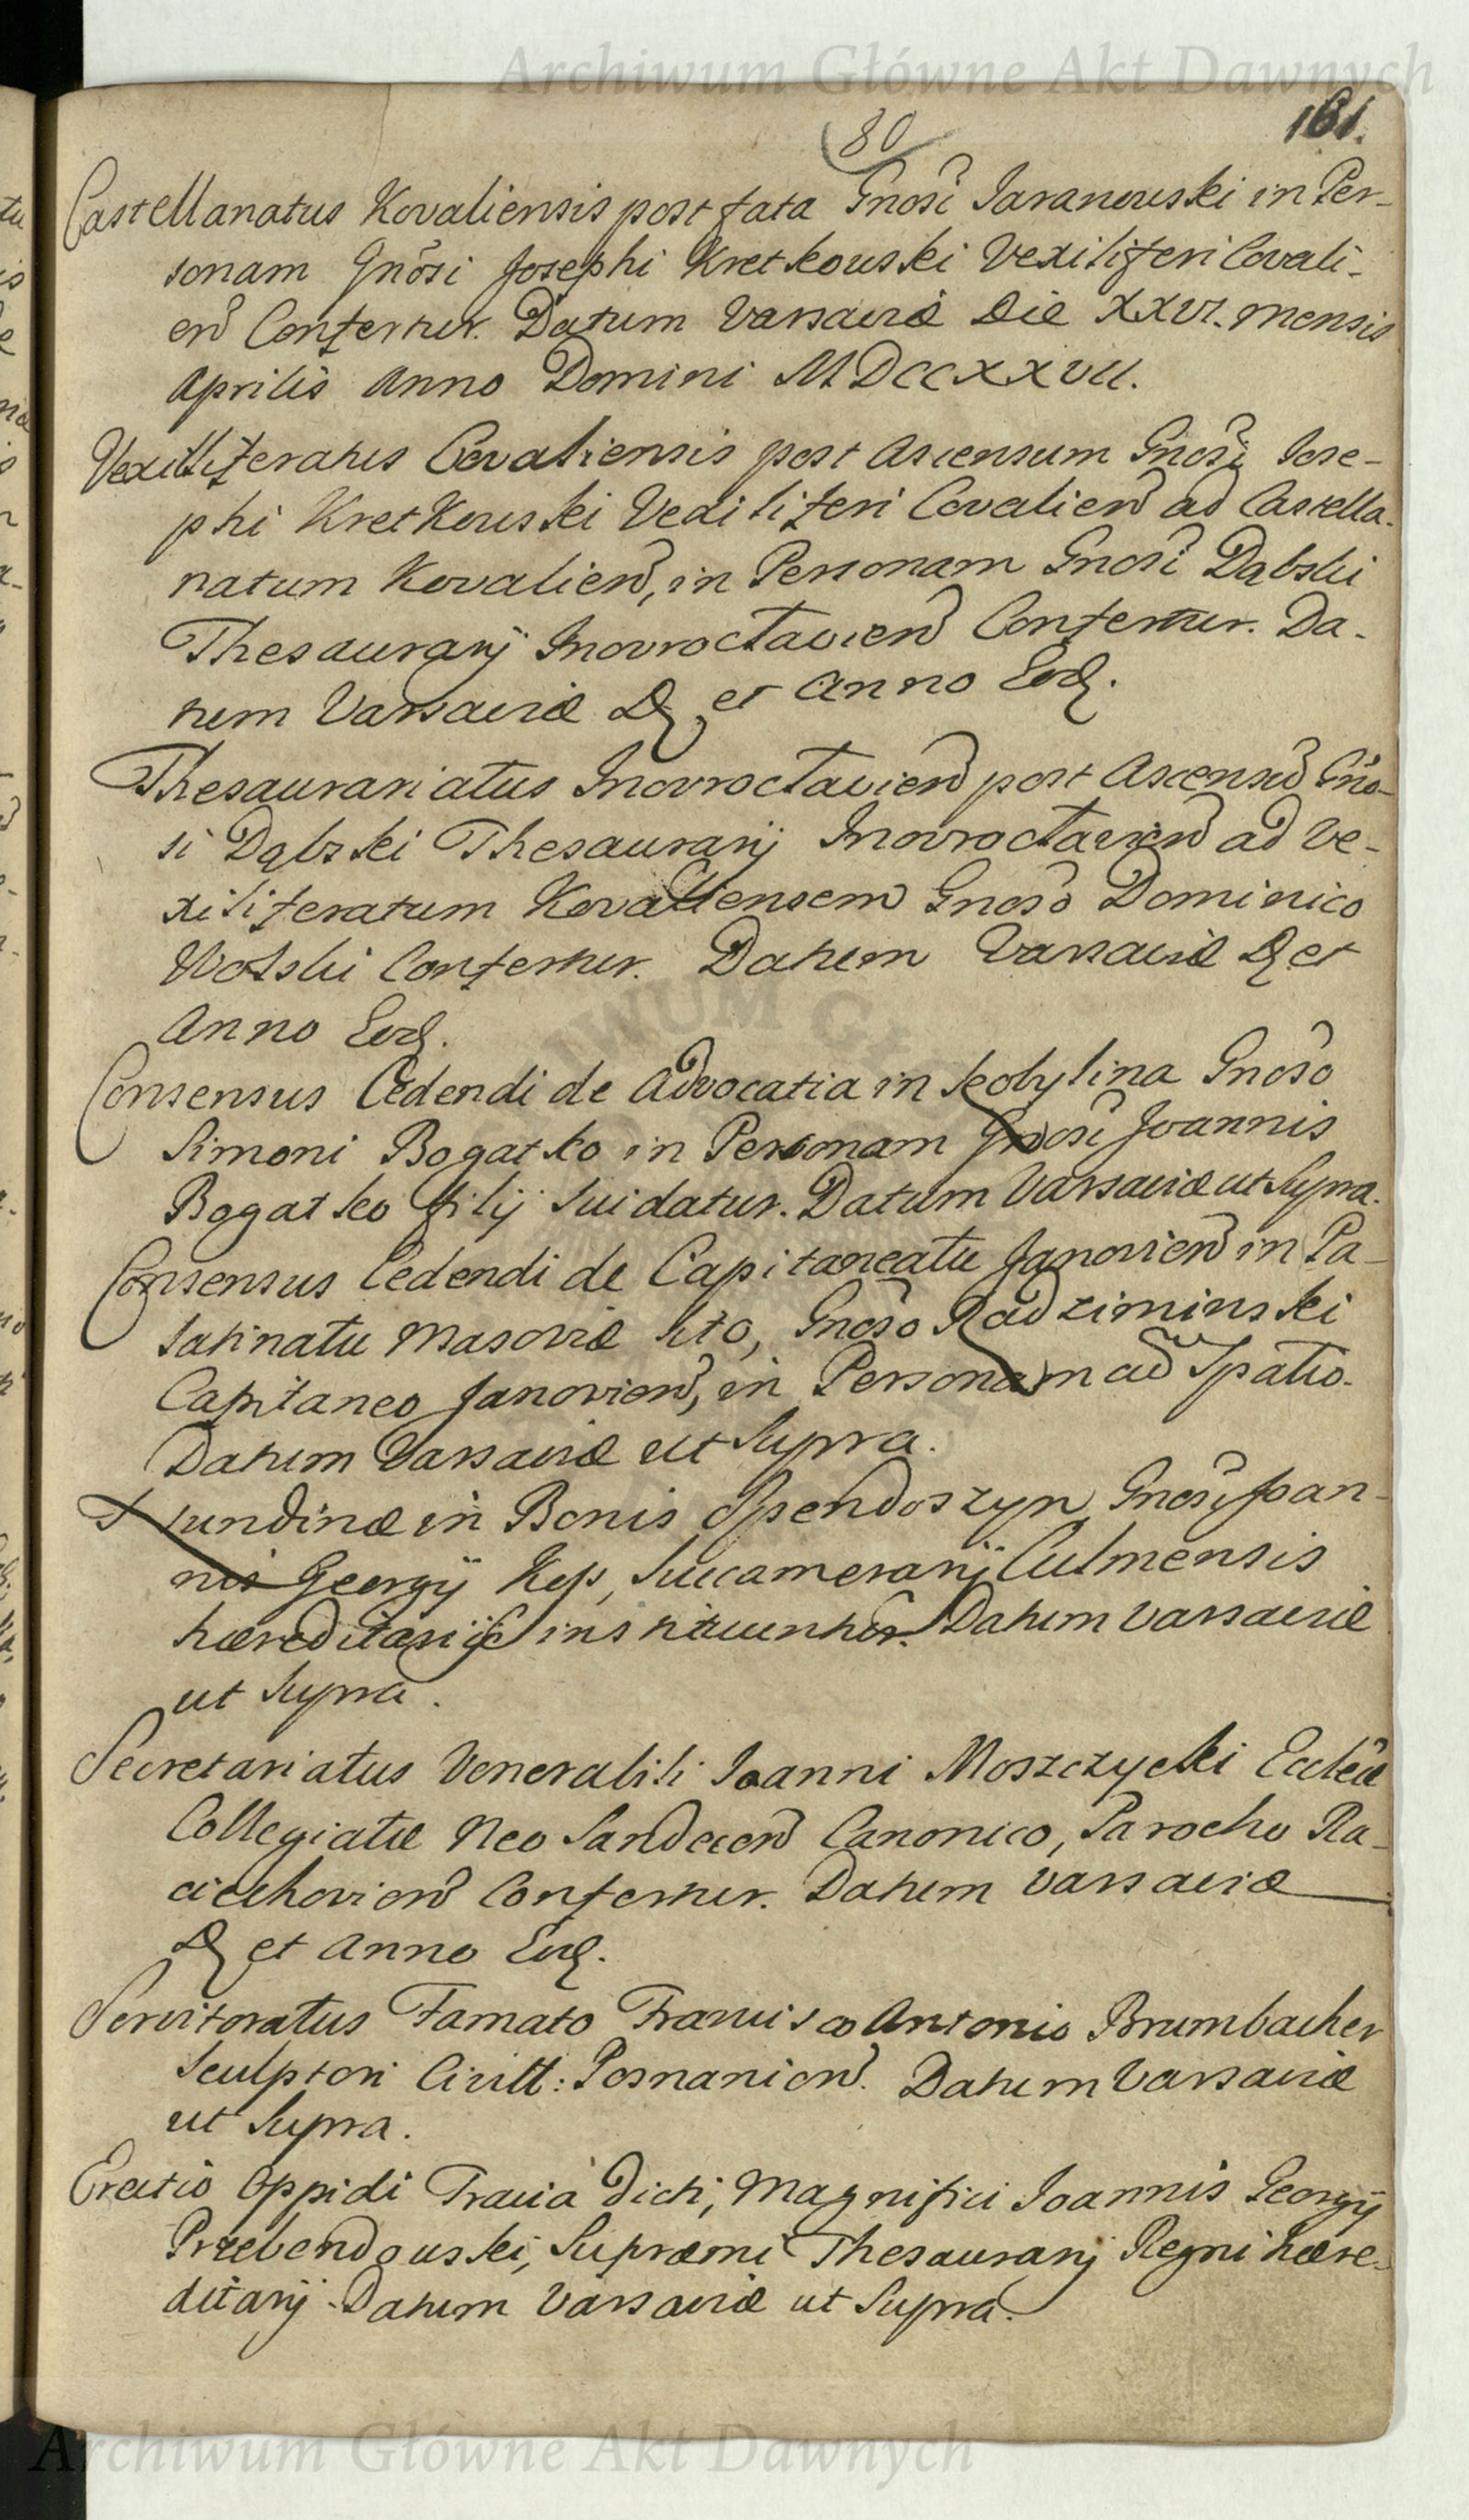 Archiwum Główne Akt Dawnych
80
161.
Castellanatus Kovaliensis post fata Gnosi Jaranowski in Per-
sonam Gnosi Josephi Kretkowski Vexiliferi Covali-
en Confertur. Datum Varsaviæ Die XXVI. mensis
Aprilis Anno Domini MDCCXXVII.
Vexilliferatus Covaliensis post Ascensum Gnosi Jose-
phi Kretkowski Vexiliferi Covalien ad Castella-
natum Kovalien, in Personam Gnosi Dąbski
Thesaurarij Inowroctavien Confertur. Da-
tum Varsaviæ D. et Anno Eod.
Thesaurariatus Inowroctavien post Ascensu Gno-
si Dąbski Thesaurarij Inowroctavien ad Ve-
xiliferatum Kovaliensem Gnoso Dominico
Wolski Confertur. Datum Varsaviæ D. et
Anno Eod.
Consensus Cedendi de Advocatia in Kobylina Gnoso
Simoni Bogatko in Personam Gnosi Joannis
Bogatko filij sui datur. Datum Varsaviæ ut Supra.
Consensus Cedendi de Capitaneatu Janovien in Pa-
latinatu Masoviæ sito, Gnoso Radziminski
Capitaneo Janovien, in Personam ad Spatio.
Datum Varsaviæ ut Supra.
Nundinæ in Bonis Gnosi Joan-
nis Georgij Succamerarij Culmensis
hæreditarijs instituuntur. Datum Varsaviæ
ut Supra.
Secretariatus Venerabili Joanni Moszczycki Ecclēæ
Collegiatæ Neo Sandecen Canonico, Parocho Ra-
ciechovien Confertur. Datum Varsaviæ
D. et Anno Eod.
Servitoratus Famato Francisco Antonio Brumbacher
Sculptori Civitt: Posnanien. Datum Varsaviæ
ut Supra.
Erectio Oppidi dicti, Magnifici Joannis Georgij
Przebendowski, Supræmi Thesaurarij Regni hære-
ditarij. Datum Varsaviæ ut Supra.
Archiwum Główne Akt Dawnych